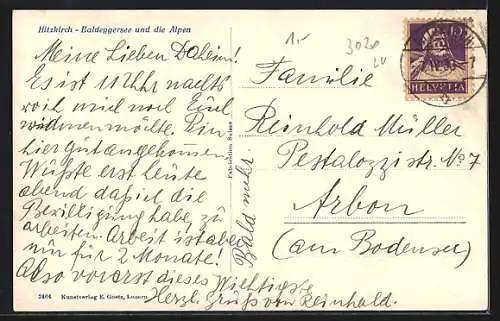 Hitzkirch - Baldeggersee und die Alpen
1.-
3020
LU
HELVETIA
Meine Lieben Daheim!
Es ist 11 Uhr nachts
wo ich mich noch Euch
widmen möchte. Bin
hier gut angekommen.
Wußte erst heute
abend daß ich die
Bewilligung habe, zu
arbeiten. Arbeit ist aber
nur für 2 Monate!
Also vorerst dieses Wichtigste
Herzl. Gruß von Reinhold.
Bald mehr.
Fabrication Suisse
Familie
Reinhold Müller
Pestalozzistr. No 7
Arbon
(am Bodensee)
2464 Kunstverlag E. Goetz, Luzern.